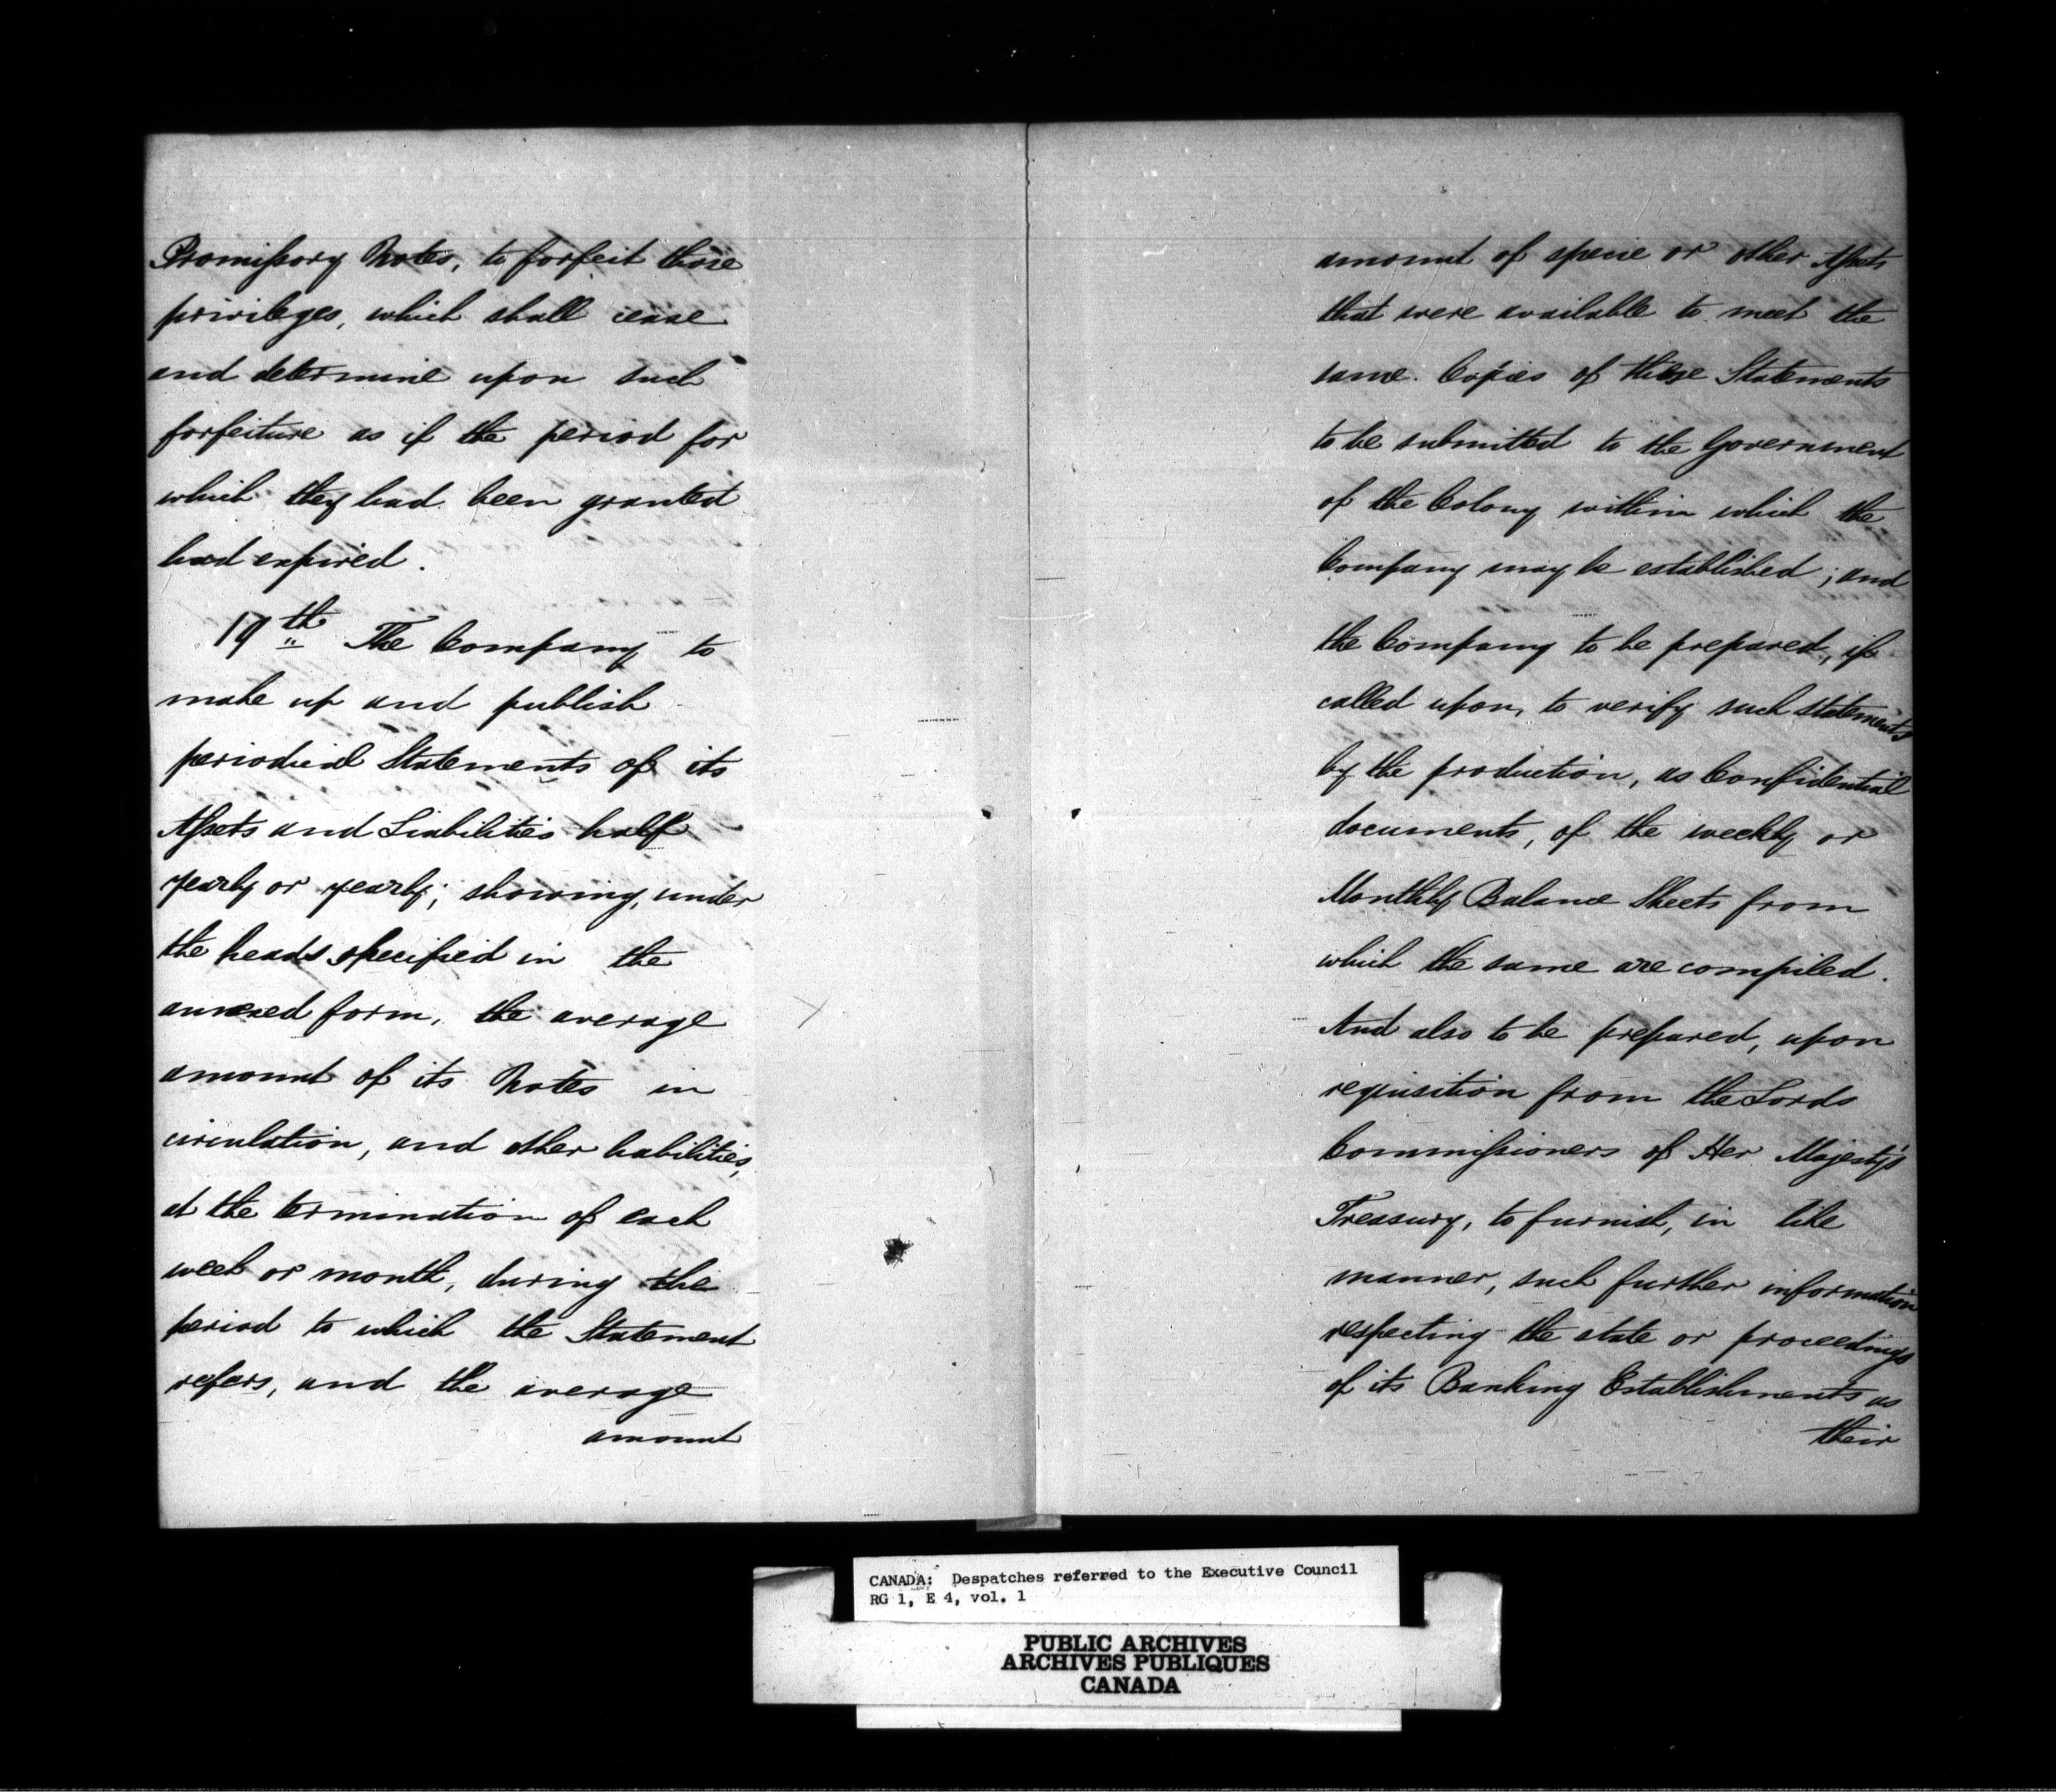 Promissory Notes, to forfeit those
privileges, which shall cease
and determine upon such
forfeiture as if the period for
which they had been granted
had expired.
19th The Company to
make up and publish
periodical Statements of its
Assets and Liabilities half
yearly or yearly; showing, under
the heads specified in the
annexed form, the average
amount of its Notes in
circulation, and other liabilities,
at the termination of each
week or month, during the
period to which the Statement
refers, and the average
amount
amount of specie or other Assets
that were available to meet the
same. Copies of these Statements
to be submitted to the Government
of the Colony within which the
Company may be established; and
the Company to be prepared, if
called upon, to verify such statements
by the production, as Confidential
documents, of the weekly or
Monthly Balance Sheets from
which the same are compiled.
And also to be prepared, upon
requisition from the Lords
Commissioners of Her Majesty's
Treasury, to furnish, in like
manner, such further information
respecting the state or proceedings
of its Banking Establishments as
their
CANADA: Despatches referred to the Executive Council
RG 1, E 4, vol. 1
PUBLIC ARCHIVES
ARCHIVES PUBLIQUES
CANADA